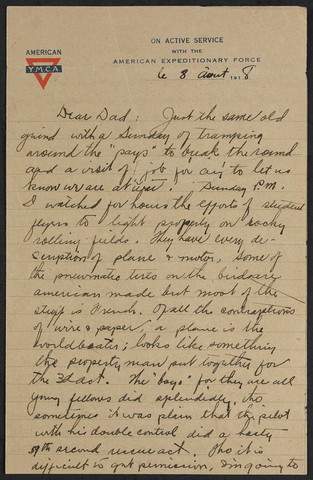 AMERICAN
Y.M.C.A
ON ACTIVE SERVICE
WITH THE
AMERICAN EXPEDITIONARY FORCE
le 3 Aout 1918
Dear Dad: Just the same old
grind with a Sunday of tramping
around the "pays" to break the round
and a visit of job for air to let us
know we are at Sunday P.M.
I watched for hours the efforts of student
flyers to light properly on rocky
rolling fields. They have every de-
scription of plane & motor, some of
the pneumatic tires on the birds are
american made but most of the
stuff is French. Of all the contraptions
of wire & paper, a plane is the
worldbeater; looks like something
the property man put together for
the 3d act. The "boys" for they are all
young fellows did splendidly, tho
sometimes it was plain that the pilot
with his double control did a hasty
59th second rescue act. Tho it is
difficult to get permission, I'm going to